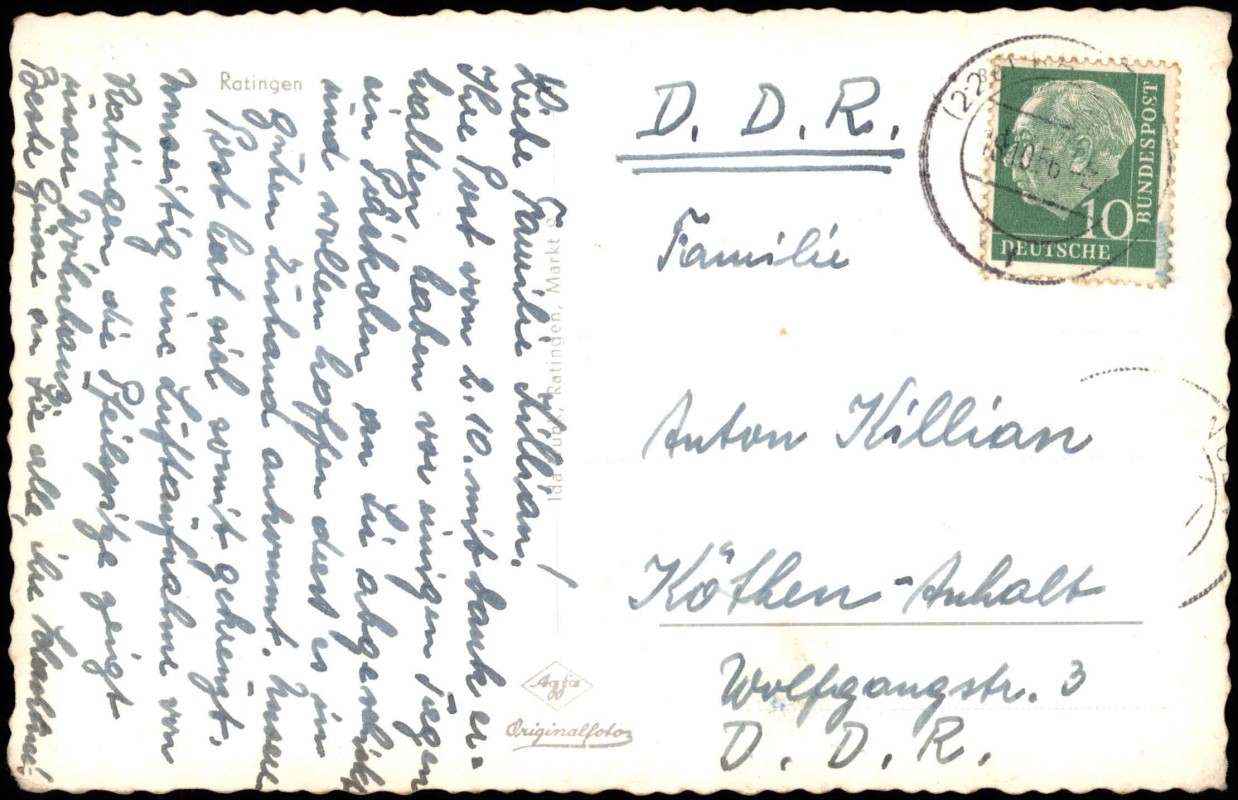 Ratingen
Liebe Familie Killian.
Ihre Post vom 2.10. mit Dank er-
halten, haben vor einigen Tagen
ein Päckchen an Sie abgeschickt
und wollen hoffen dass es in
guten Zustand ankommt. Unsere
Post hat sich somit gekreuzt.
Umseitig eine Luftaufnahme von
Ratingen, die Pfeilspitze zeigt
unser Wohnhaus.
Beste Grüsse an Sie alle, ihre
Ratingen, Markt
Agfa
Originalfoto
D. D. R.
Familie
Anton Killian
Köthen-Anhalt
Wolfgangstr. 3
D. D. R.
10
DEUTSCHE
BUNDESPOST
(22
10.56